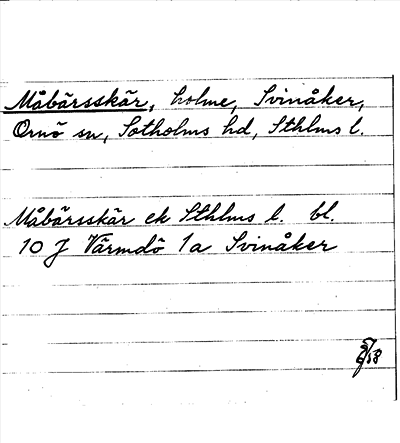 Måbärsskär, holme, Svinåker,
Ornö sn, Sotholms hd, Sthlms l.
Måbärsskär ek Sthlms l. bl.
10 J Värmdö 1a Svinåker